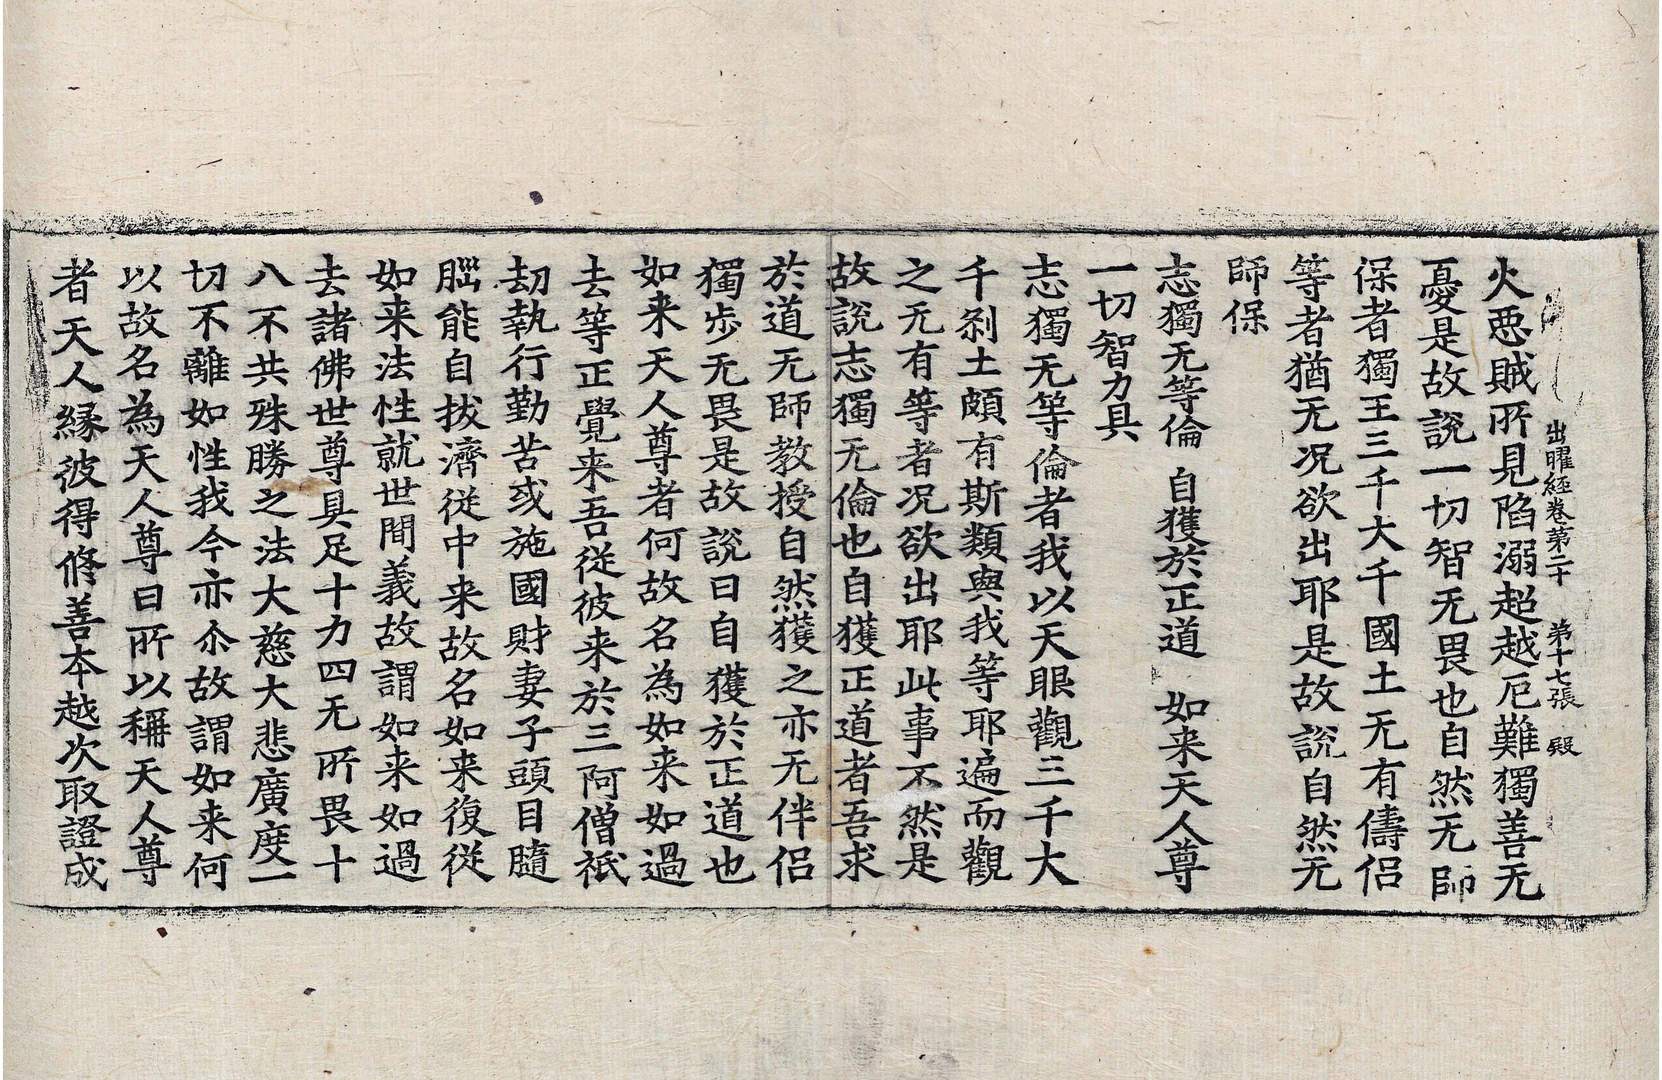 出曜經卷第二十 第十七張 殿
火惡賊所見陷溺超越厄難獨善无
憂是故說一切智无畏也自然无師
保者獨王三千大千國土无有儔侶
等者猶无况欲出耶是故說自然无
師保
志獨无等倫 自獲於正道 如来天人尊
一切智力具
志獨无等倫者我以天眼觀三千大
千刹土頗有斯類與我等耶遍而觀
之无有等者况欲出耶此事不然是
故說志獨无倫也自獲正道者吾求
於道无師教授自然獲之亦无伴侶
獨步无畏是故說曰自獲於正道也
如来天人尊者何故名為如来如過
去等正覺来吾從彼来於三阿僧祇
劫執行勤苦或施國財妻子頭目髓
腦能自拔濟從中来故名如来復從
如来法性就世間義故謂如来如過
去諸佛世尊具足十力四无所畏十
八不共殊勝之法大慈大悲廣度一
切不離如性我今亦尒故謂如来何
以故名為天人尊曰所以稱天人尊
者天人緣彼得修善本越次取證成